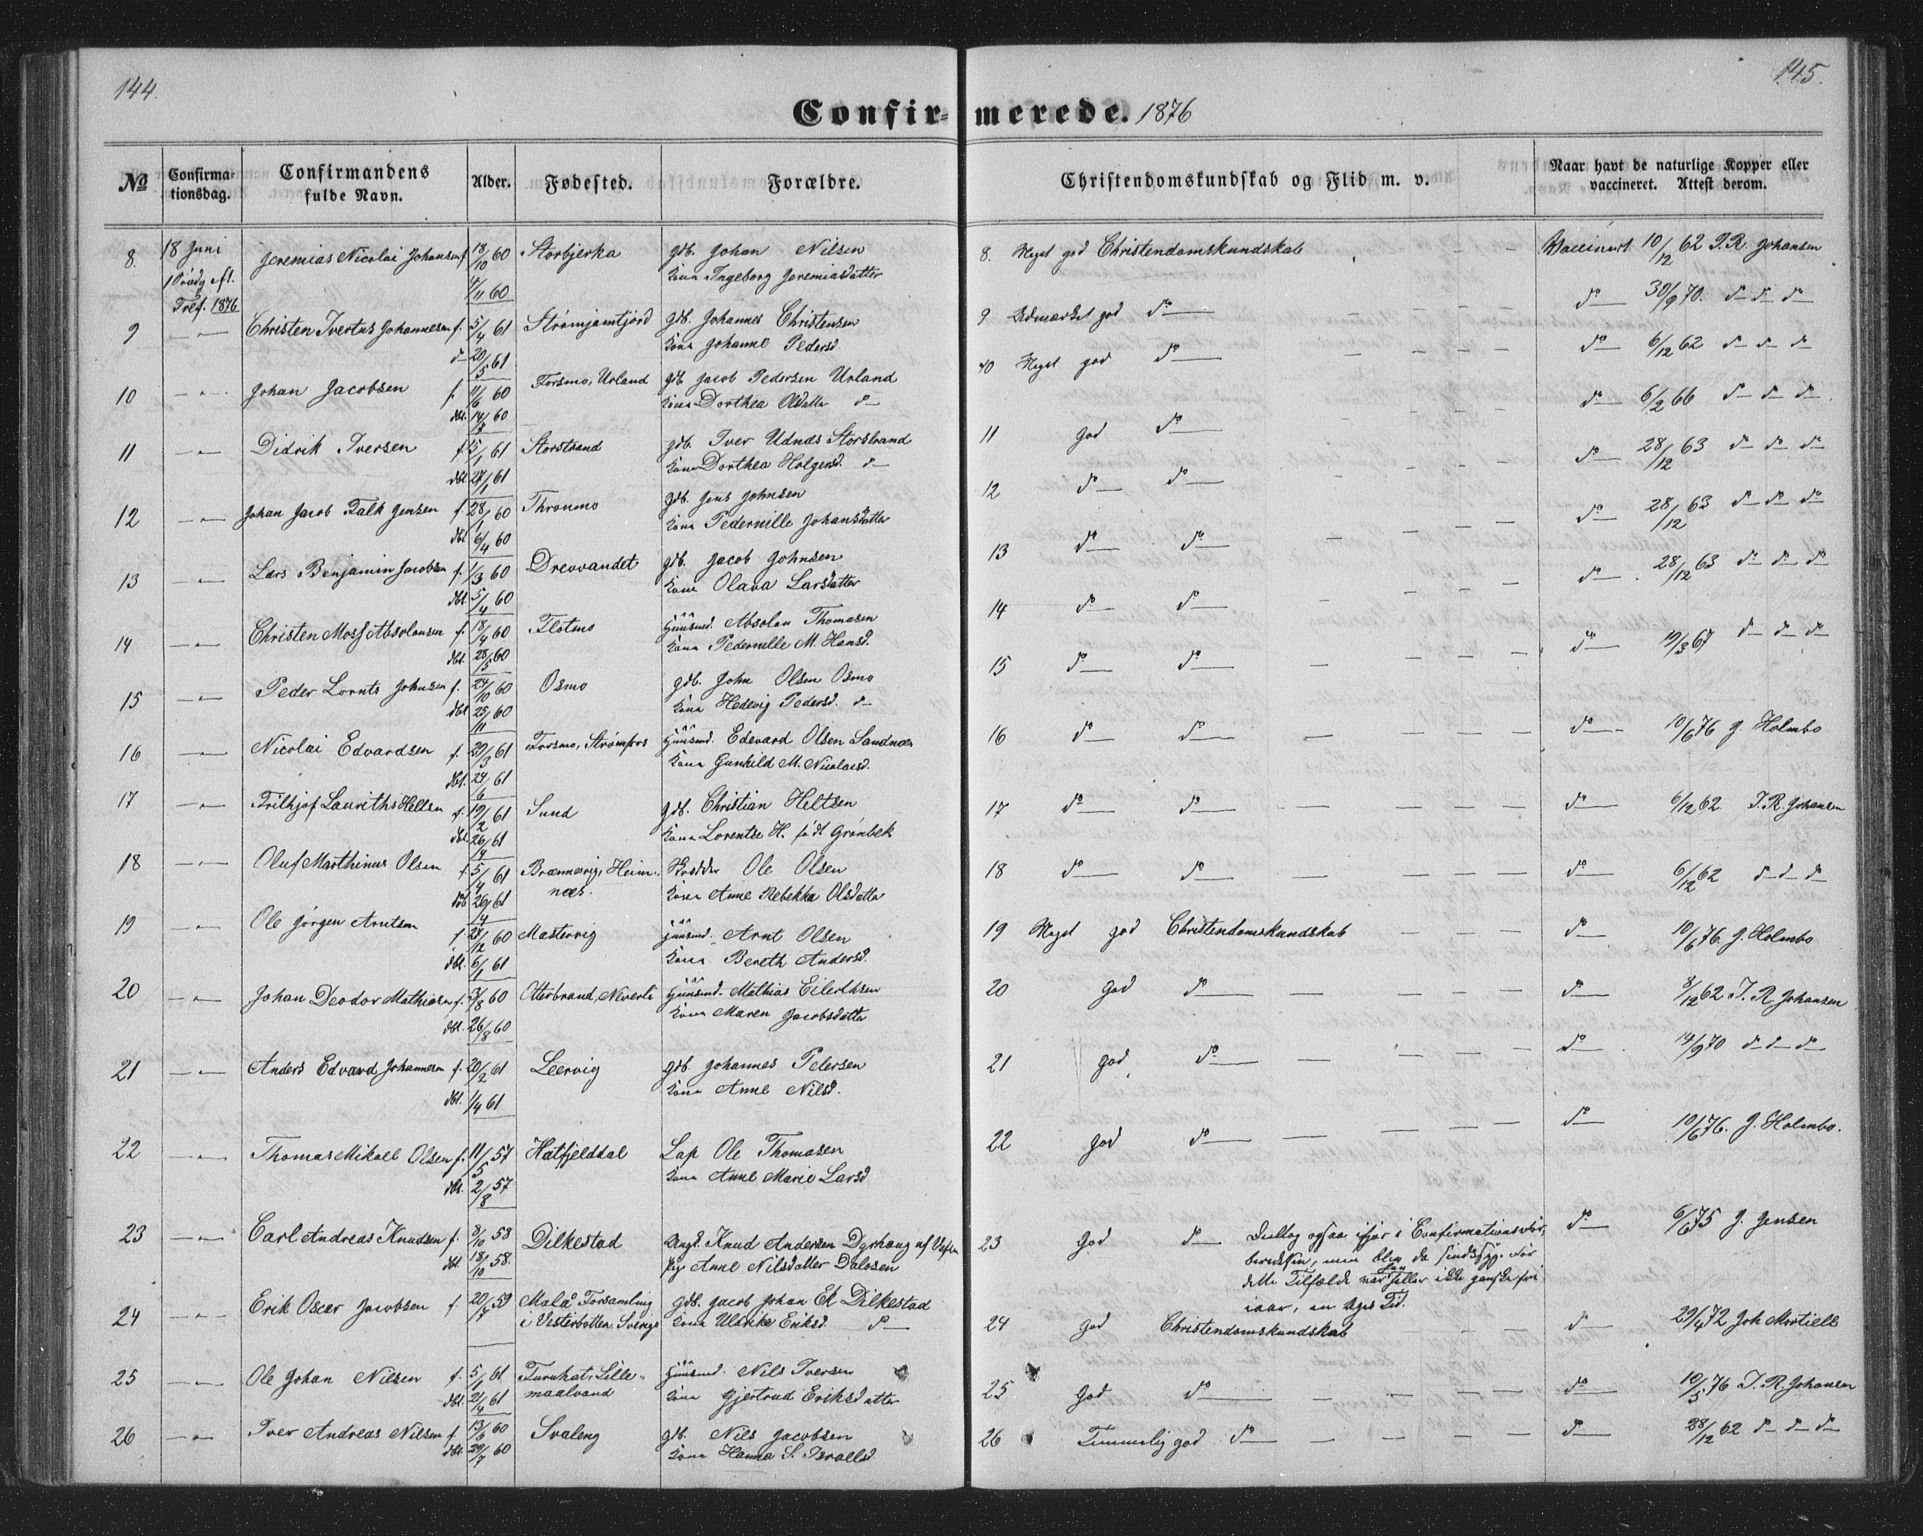 144.
145.
Confir- merede. 1876
№
Confirma-
tionsdag.
Confirmandens
fulde Navn.
Alder.
Fødested.
Forældre.
Christendomskundskab og Flid m. v.
Naar havt de naturlige Kopper eller
vaccineret. Attest derom.
8. 18 Juni Jeremias Nicolai Johansen f. 18/10 60 Storbjerka gdb. Johan Nilsen
4/11 60 Kone Ingeborg Jeremiasdatter
Tref. 1876
8. Meget god Christendomskundskab — — Vaccinert 10/12 62 J. R. Johansen
9 —„— Christen Ivertus Johannesen f. 5/4 61 gdb. Johannes Christensen
d— 20/5 61 Kone Johanne Pedersd.
9 Udmærket god do — — — do— 30/9 70. do— do— do
10 —„— Johan Jacobsen f. 11/6 60 Forsmo, Urland gdb Jacob Pedersen Urland
dbt. 14/8 60 Kone Dorthea Olsdatter do—
10 Meget god do — — — do— 6/12 62 do— do— do
11 —„— Didrik Iversen f. 5/1 61 Storstrand gdb. Iver Udnæs Storstrand
dbt 27/1 61 Kone Dorthea Holgersd. do—
11 god do— — — — do— 6/2 66 do— do— do
12 —„— Johan Jacob Falk Jensen f. 28/1 60 Thronmo gdb. Jens Johnsen
dbt 6/4 60 Kone Pedernille Johansdatter
12 do— do— — — — do— 28/12 63 do— do— do
13 —„— Lars Benjamin Jacobsen f. 1/3 60 Drevvandet gdb. Jacob Johnsen
dbt 5/4 60 Kone Olava Larsdatter
13 do— do— — — — do— 28/12 63 do— do— do
14 —„— Christen Moss Absolonsen f. 18/4 60 Flotmo Huusmd. Absolon Thomasen
dbt. 28/5 60 Kone Pedernille M. Hansd.
14 do— do— — — — do— 28/12 63 do— do— do
15 —„— Peder Lornts Johnsen f. 24/10 60 Osmo gdb. John Olsen Osmo
dbt 25/11 60 Kone Hedevig Pedersd. do—
15 do— do— — — — do— 19/3 67 do— do— do
16 —„— Nicolai Edvardsen f. 29/3 61 Forsmo, Strømfors Huusmd. Edevard Olsen Sandnæs
dbt. 24/6 61 Kone Gunhild M. Nicolaisd.
16 do— do— — — — do— 10/6 76 J. Holmbo
17 —„— Frithjof Lauriths Heltsen f. 19/2 61 Sund gdb. Christian Heltsen
dbt. 26/4 61 Kone Lorentse H. født Grønbek
17 do— do— — — — do— 6/12 62 J. R. Johansen
18 —„— Oluf Marthinus Olsen f. 5/4 61 Brænnvig, Heim-
næs.
Skrædder Ole Olsen
26/4 61 Kone Anne Rebekka Olsdatter
18 do— do— — — — do— 6/12 62 do— do— do
19 —„— Ole Jørgen Arntsen f 60 Mastervig Huusmd. Arnt Olsen
dbt. 6/1 61 Kone Bereth Andersd.
19 Meget god Christendomskundskab — — — do— 10/6 76. J. Holmbo
20 —„— Johan Deodor Mathiasen f. 3/8 60 Otterbrand, Neverli Huusmd. Mathias Eilertsen
dbt. 26/8 60 Kone Maren Jacobsdatter
20 god do— — — — do— 8/12 62 J. R. Johansen
21 —„— Anders Edvard Johannesen f. 20/2 61 Leervig gdb Johannes Petersen
dbt. 1/4 61 Kone Anne Nilsd.
21 god do— — — — do— 14/9 70 do— do— do
22 —„— Thomas Mikael Olsen f. 11/5 57 Hatfjelddal Lap Ole Thomasen
dbt. 2/8 57 Kone Anne Marie Larsd
22 god do— — — — do— 10/6 76. J. Holmbo.
23 —„— Carl Andreas Knudsen f. 8/10 58 Dilkestad Ungk. Knud Andersen Dyrhaug af Vefsn
dbt 18/10 58. Pig Anne Nilsdatter Dalosen
23 God do— Deltog ogsaa ifjor i Confirmationsfor-
beredelsen, men blev da sindssyg. Før
dette Tilfælde var han heller ikke ganske fri
iaar, en Uges Tid.
do— 6/6 75 J. Jensen
24 —„— Erik Oscar Jacobsen f 20/7 59 Malå Forsamling
i Vesterbotten Sverige
gdb. Jacob Johan Ek Dilkestad
Kone Ulrike Eriksd. do—
24 God Christendomskundskab — — — do— 29/4 72 Joh Mortiell
25 —„— Ole Johan Nilsen f. 5/1 61 Furuhat, Lille-
maalvand
Huusmd. Nils Iversen
dbt. 21/4 61 Kone Gjertrud Eriksdatter
25 God do— — — — do— 10/5 76 J. R. Johansen
26 —„— Iver Andreas Nilsen f 13/6 60 Svaleng gdb. Nils Jacobsen
dbt 29/7 60 Kone Hanna S. Israelsd
26 Temmelig god do— — — — do— 28/12 62 do— do— do